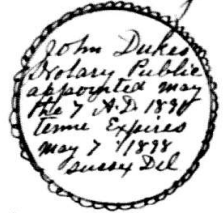 John Dukes
Notary Public
appointed may
the 7 A.D 1890
terme Expires
may 7 1898
Sussex Del